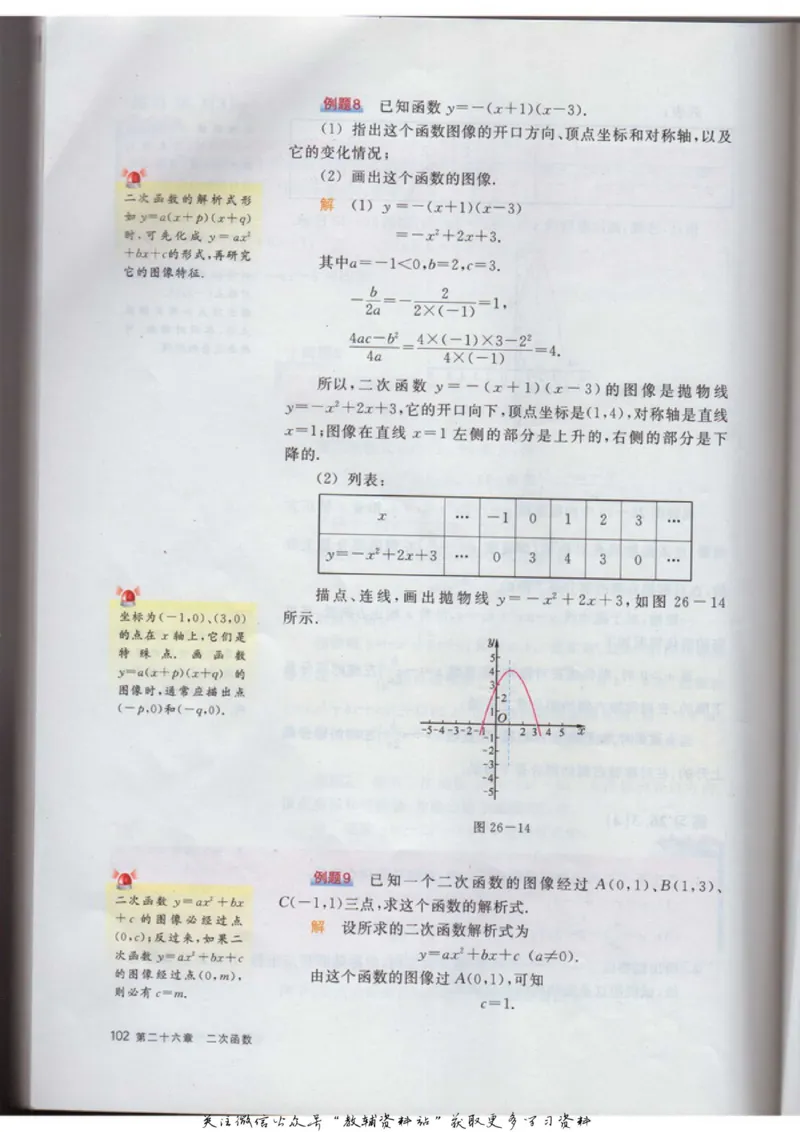 例题8 已知函数 y=-(x+1)(x-3).
(1) 指出这个函数图像的开口方向、顶点坐标和对称轴,以及
它的变化情况;
(2) 画出这个函数的图像.
二次函数的解析式形
如 y=a(x+p)(x+q)
时,可先化成 y=ax²
+bx+c的形式,再研究
它的图像特征.
解 (1) y=-(x+1)(x-3)
=-x²+2x+3.
其中a=-1<0,b=2,c=3.
-b/2a=-2/2×(-1)=1,
4ac-b²/4a=4×(-1)×3-2²/4×(-1)=4.
所以,二次函数 y=-(x+1)(x-3)的图像是抛物线
y=-x²+2x+3,它的开口向下,顶点坐标是(1,4),对称轴是直线
x=1;图像在直线 x=1 左侧的部分是上升的,右侧的部分是下
降的.
(2) 列表:
x … -1 0 1 2 3 …
y=-x²+2x+3 … 0 3 4 3 0 …
描点、连线,画出抛物线 y=-x²+2x+3,如图 26-14
所示.
坐标为(-1,0)、(3,0)
的点在 x 轴上,它们是
特殊点. 画函数
y=a(x+p)(x+q) 的
图像时,通常应描出点
(-p,0)和(-q,0).
y
5
4
3
2
1
O
-5-4-3-2-1 1 2 3 4 5 x
-1
-2
-3
-4
-5
图 26-14
例题9 已知一个二次函数的图像经过 A(0,1)、B(1,3)、
C(-1,1)三点,求这个函数的解析式.
解 设所求的二次函数解析式为
y=ax²+bx+c (a≠0).
由这个函数的图像过 A(0,1),可知
c=1.
二次函数 y=ax²+bx
+c 的图像必经过点
(0,c);反过来,如果二
次函数 y=ax²+bx+c
的图像经过点(0,m),
则必有 c=m.
102 第二十六章 二次函数
关注微信公众号“教辅资料站”获取更多学习资料